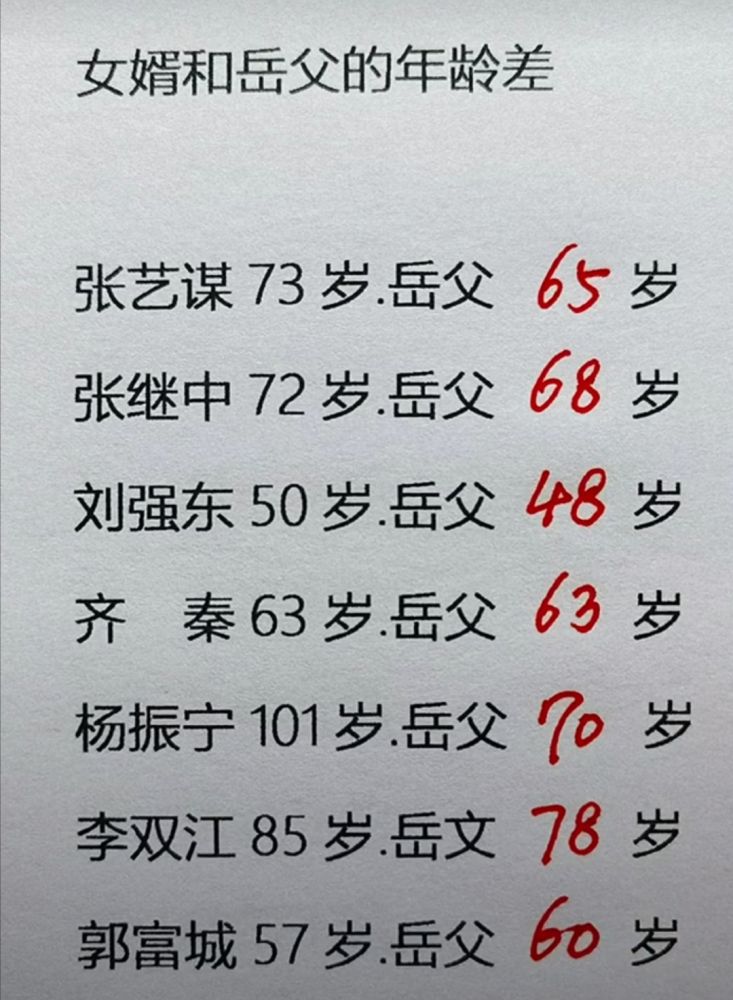 女婿和岳父的年龄差
张艺谋 73 岁.岳父 65 岁
张继中 72 岁.岳父 68 岁
刘强东 50 岁.岳父 48 岁
齐　秦 63 岁.岳父 63 岁
杨振宁 101 岁.岳父 70 岁
李双江 85 岁.岳文 78 岁
郭富城 57 岁.岳父 60 岁